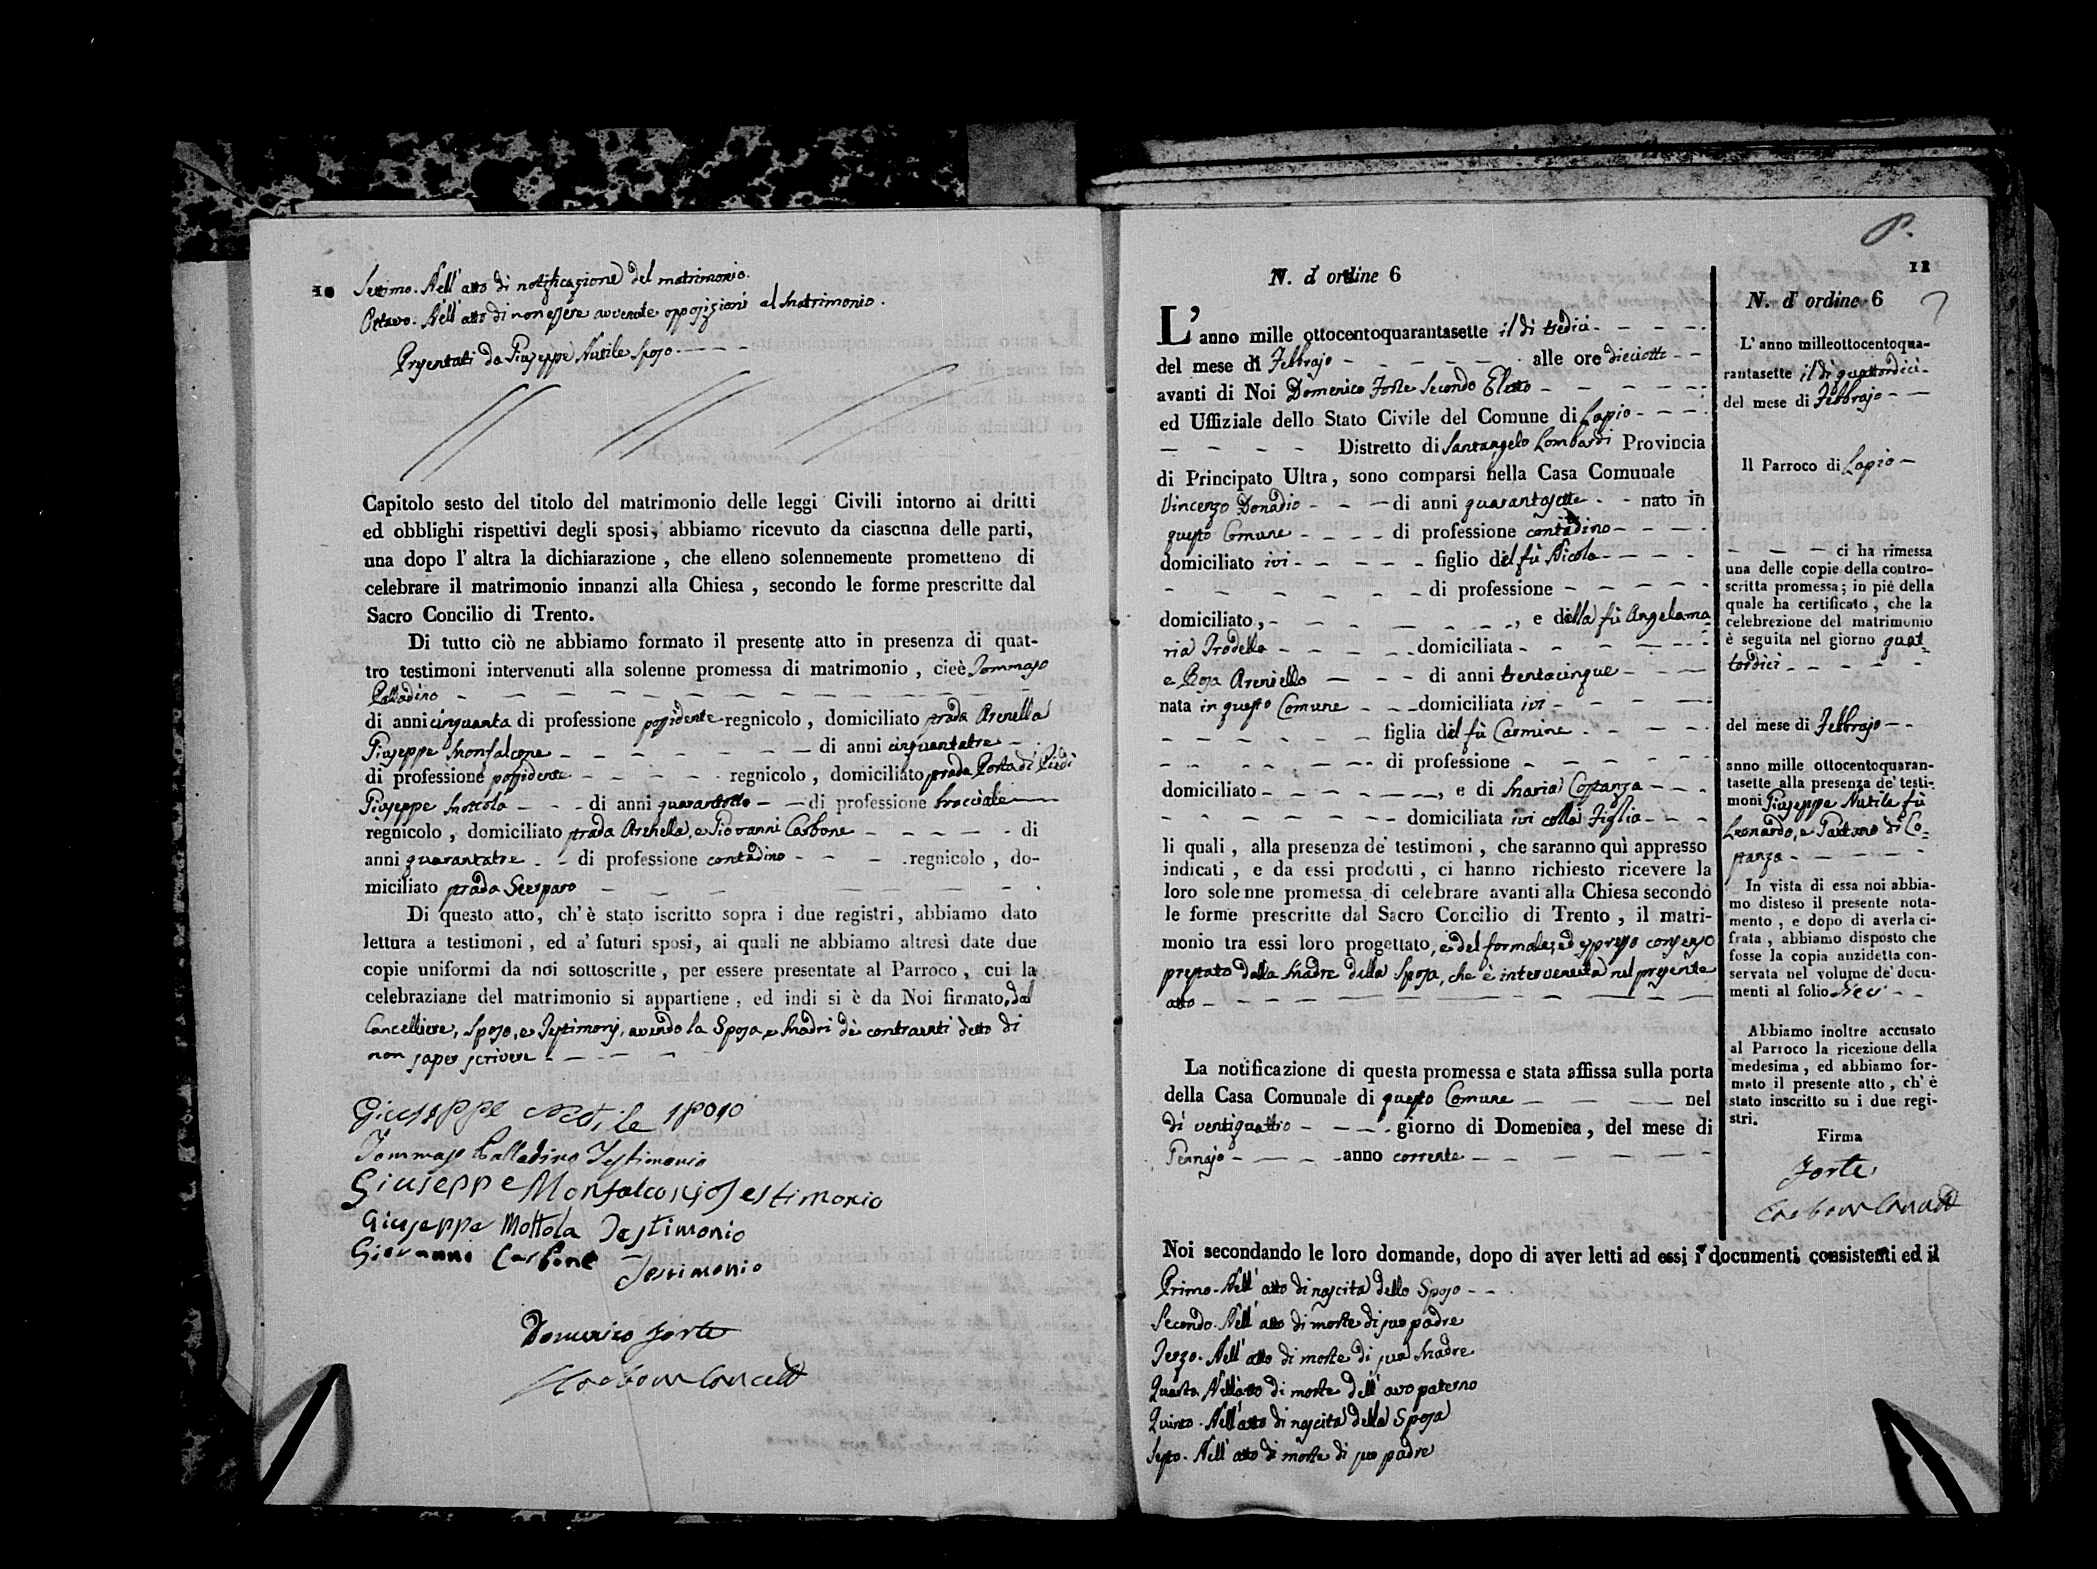 10
Settimo. Nell' atto di notificazione del matrimonio.
Ottavo. Nell' atto di non essere avvenute opposizioni al Matrimonio.
Presentati da Giuseppe Nutile Sposo
Capitolo sesto del titolo del matrimonio delle leggi Civili intorno ai dritti
ed obblighi rispettivi degli sposi, abbiamo ricevuto da ciascuna delle parti,
una dopo l' altra la dichiarazione, che elleno solennemente prometteno di
celebrare il matrimonio innanzi alla Chiesa, secondo le forme prescritte dal
Sacro Concilio di Trento.
Di tutto ciò ne abbiamo formato il presente atto in presenza di quat-
tro testimoni intervenuti alla solenne promessa di matrimonio, cioè Tommaso
Palladino
di anni cinquanta di professione possidente regnicolo, domiciliato strada Arenella
Giuseppe Monfalcone di anni cinquantatre
di professione possidente regnicolo, domiciliato strada Porta di Piedi
Giuseppe Mottola di anni quarantotto di professione bracciale
regnicolo, domiciliato strada Arenella, e Giovanni Carbone di
anni quarantatre di professione contadino regnicolo, do-
miciliato strada
Di questo atto, ch' è stato iscritto sopra i due registri, abbiamo dato
lettura a testimoni, ed a' futuri sposi, ai quali ne abbiamo altresì date due
copie uniformi da noi sottoscritte, per essere presentate al Parroco, cui la
celebraziane del matrimonio si appartiene, ed indi si è da Noi firmato, dal
Cancelliere, Sposo, e Testimonj, avendo la Sposa, e Madri de' contraenti detto di
non saper scrivere
Giuseppe Nutile sposo
Tommaso Palladino Testimonio
Giuseppe Monfalcone Testimonio
Giuseppe Mottola Testimonio
Giovanni Carbone Testimonio
Domenico Forte
P.
11
N. d' ordine 6
L' anno mille ottocentoquarantasette il dì tredici
del mese di Febbrajo alle ore dieciotto
avanti di Noi Domenico Forte Secondo Eletto
ed Uffiziale dello Stato Civile del Comune di Lapio
Distretto di Santangelo Lombardi Provincia
di Principato Ultra, sono comparsi nella Casa Comunale
Vincenzo Donadio di anni quarantasette nato in
questo Comune di professione contadino
domiciliato ivi figlio del fù Nicola
di professione
domiciliato, e della fù Angelama
ria domiciliata
e Rosa Areniello di anni trentacinque
nata in questo Comune domiciliata ivi
figlia del fù Carmine
di professione
domiciliato, e di Maria Costanza
domiciliata ivi colla Figlia
li quali, alla presenza de' testimoni, che saranno qui appresso
indicati, e da essi prodotti, ci hanno richiesto ricevere la
loro solenne promessa di celebrare avanti alla Chiesa secondo
le forme prescritte dal Sacro Concilio di Trento, il matri-
monio tra essi loro progettato, e del formale, ed espresso consenso
prestato dalla Madre della Sposa, che è intervenuta nel presente
atto
La notificazione di questa promessa e stata affissa sulla porta
della Casa Comunale di questo Comune nel
dì ventiquattro giorno di Domenica, del mese di
Gennajo anno corrente
Noi secondando le loro domande, dopo di aver letti ad essi i documenti consistenti ed il
Primo. Nell' atto di nascita dello Sposo
Secondo. Nell' atto di morte di suo padre
Terzo. Nell' atto di morte di sua Madre
Quarto. Nell' atto di morte dell' avo paterno
Quinto. Nell' atto di nascita della Sposa
Sesto. Nell' atto di morte di suo padre
N. d' ordine 6
L' anno milleottocentoqua-
rantasette il dì quattordici
del mese di Febbrajo
Il Parroco di Lapio
ci ha rimessa
una delle copie della contro-
scritta promessa; in piè della
quale ha certificato, che la
celebrezione del matrimonio
è seguita nel giorno quat
tordici
del mese di Febbrajo
anno mille ottocentoquaran-
tasette alla presenza de' testi-
moni Giuseppe Nutile fù
Leonardo, e Gaetano di Co=
stanzo
In vista di essa noi abbia-
mo disteso il presente nota-
mento, e dopo di averla ci-
frata, abbiamo disposto che
fosse la copia anzidetta con-
servata nel volume de' docu-
menti al folio dieci
Abbiamo inoltre accusato
al Parroco la ricezione della
medesima, ed abbiamo for-
mato il presente atto, ch' è
stato inscritto su i due regi-
stri.
Firma
Forte